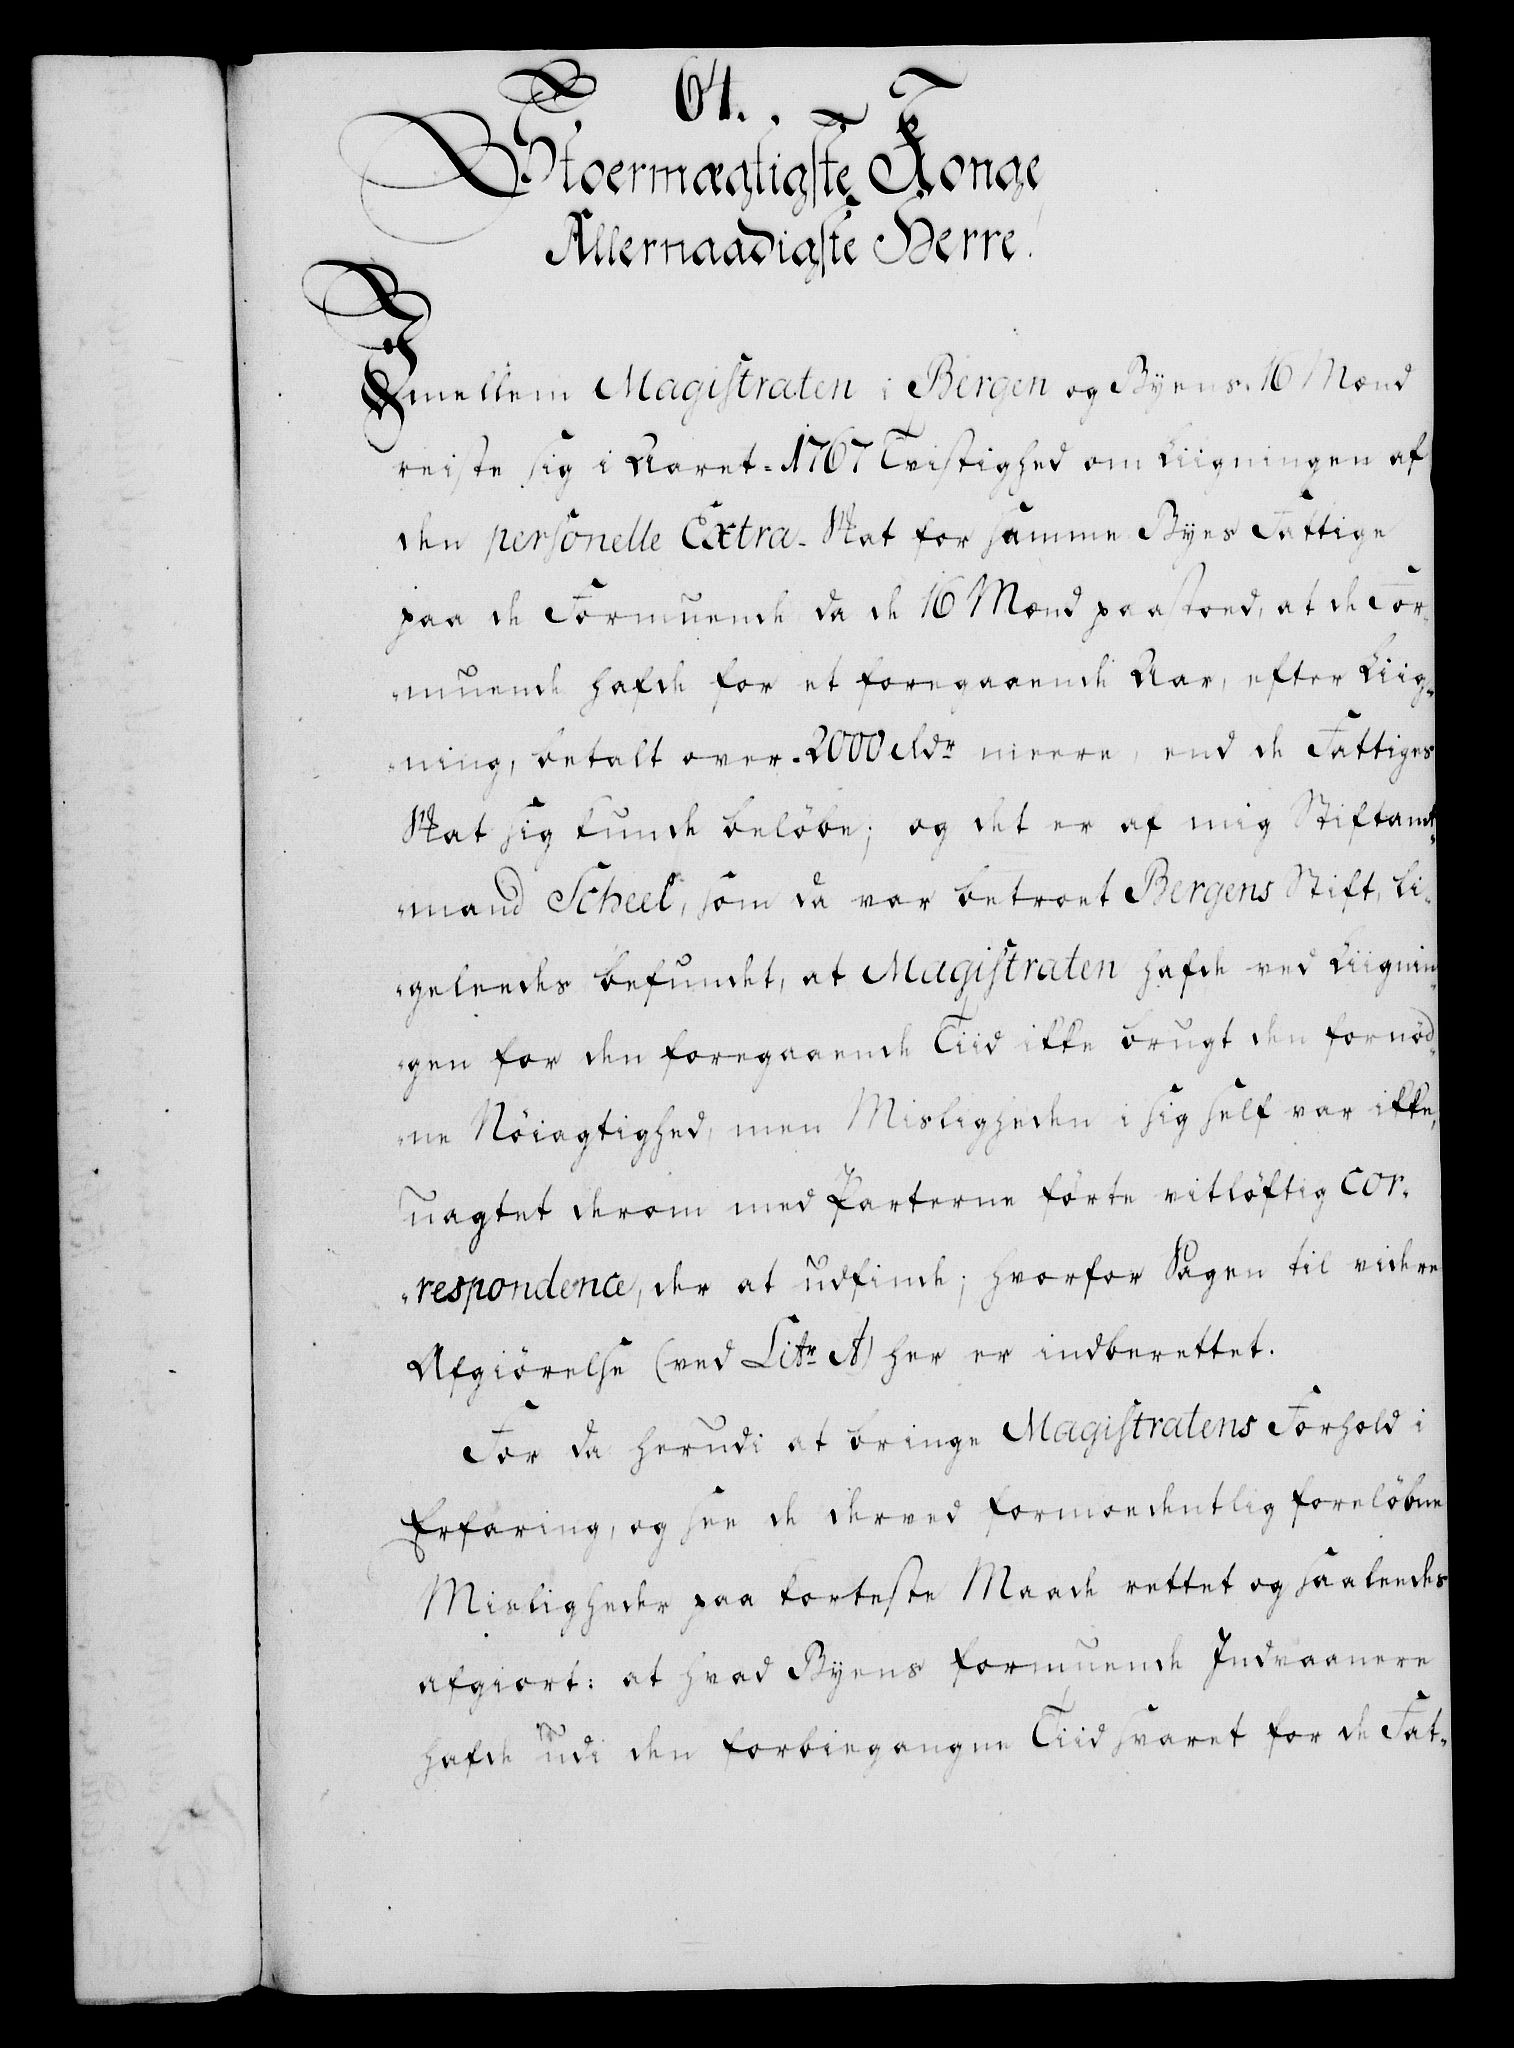 64.
Stoermægtigste Konge
Allernaadigste Herre.
Imellem Magistraten i Bergen og Byens 16 Mænd
reiste sig i Aaret 1767 Tvistighed om Liigningen af
den personelle Extra-Skat for samme Byes Fattige
paa de Formuende da de 16 Mænd paastoed, at de For-
muende hafde for et foregaaende Aar, efter Liig-
ning, betalt over 2000 Rdr meere, end de Fattiges
Skat sig kunde beløbe; og det er af mig Stiftamt-
mand Scheel, som da var betroet Bergens Stift, li-
geleedes befundet, at Magistraten hafde ved Liignin-
gen for den foregaaende Tiid ikke brugt den fornød-
ne Nöiagtighed, men Misligheden i sig self var ikke,
uagtet derom med Parterne førte vitløftig cor-
respondence, der at udfinde; hvorfor Sagen til videre
Afgiörelse (ved Litr A) her er indberettet.
For da herudi at bringe Magistratens Forhold i
Erfaring, og see de derved formoedentlig foreløbne
Misligheder paa korteste Maade rettet og saaleedes
afgiort: at hvad Byens formuende Indvaanere
hafde udi den forbiegangne Tiid svaret for de Fat-